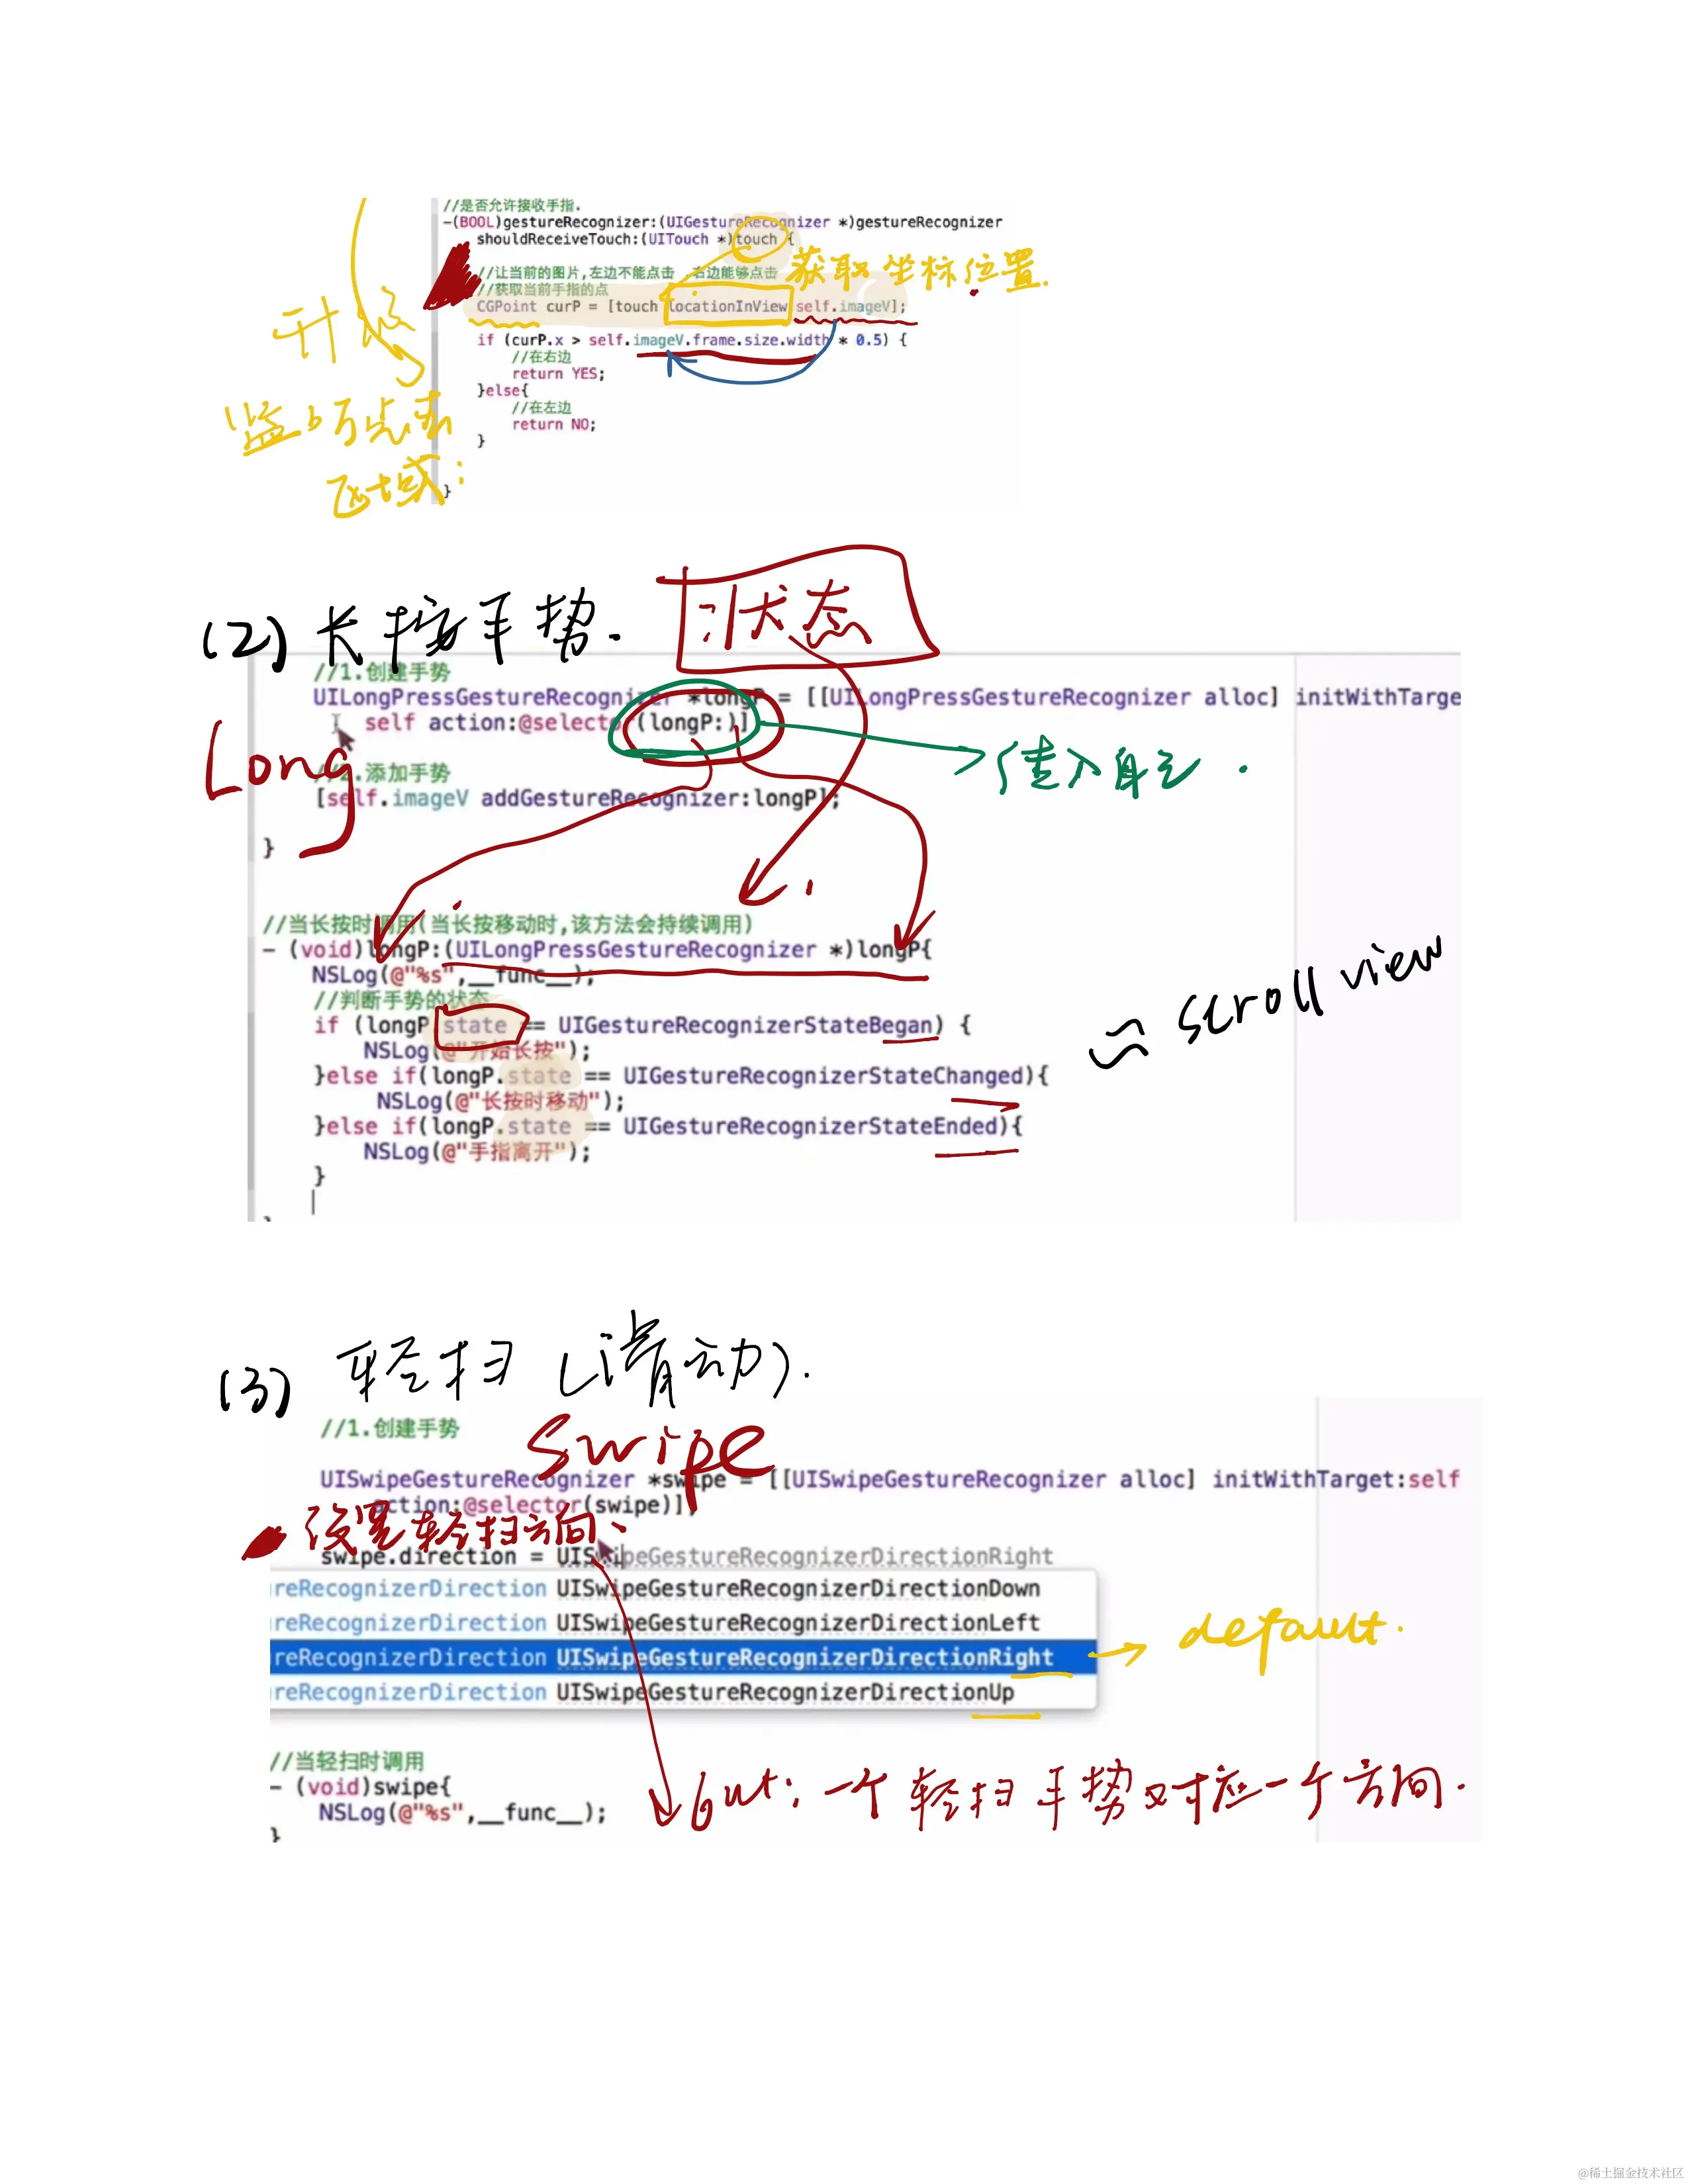 //是否允许接收手指.
-(BOOL)gestureRecognizer:(UIGestureRecognizer *)gestureRecognizer
shouldReceiveTouch:(UITouch *)touch {
//让当前的图片,左边不能点击 右边能够点击
获取坐标位置.
//获取当前手指的点
CGPoint curP = [touch locationInView self.imageV];
if (curP.x > self.imageV.frame.size.width * 0.5) {
//在右边
return YES;
}else{
//在左边
return NO;
}
}
监听点击
区域:
(2) 长按手势.
状态
//1.创建手势
UILongPressGestureRecognizer *longP = [[UILongPressGestureRecognizer alloc] initWithTarge
self action:@selector(longP:)]
Long
传入自己.
//2.添加手势
[self.imageV addGestureRecognizer:longP];
}
//当长按时调用(当长按移动时,该方法会持续调用)
- (void)longP:(UILongPressGestureRecognizer *)longP{
NSLog(@"%s",__func__);
//判断手势的状态
if (longP.state == UIGestureRecognizerStateBegan) {
≈ scroll view
NSLog(@"开始长按");
}else if(longP.state == UIGestureRecognizerStateChanged){
NSLog(@"长按时移动");
}else if(longP.state == UIGestureRecognizerStateEnded){
NSLog(@"手指离开");
}
(3) 轻扫 (滑动).
//1.创建手势
swipe
UISwipeGestureRecognizer *swipe = [[UISwipeGestureRecognizer alloc] initWithTarget:self
action:@selector(swipe)]
设置轻扫方向:
swipe.direction = UISwipeGestureRecognizerDirectionRight
reRecognizerDirection UISwipeGestureRecognizerDirectionDown
reRecognizerDirection UISwipeGestureRecognizerDirectionLeft
reRecognizerDirection UISwipeGestureRecognizerDirectionRight
→ default.
reRecognizerDirection UISwipeGestureRecognizerDirectionUp
//当轻扫时调用
- (void)swipe{
NSLog(@"%s",__func__);
but: 一个轻扫手势对应一个方向.
}
@稀土掘金技术社区